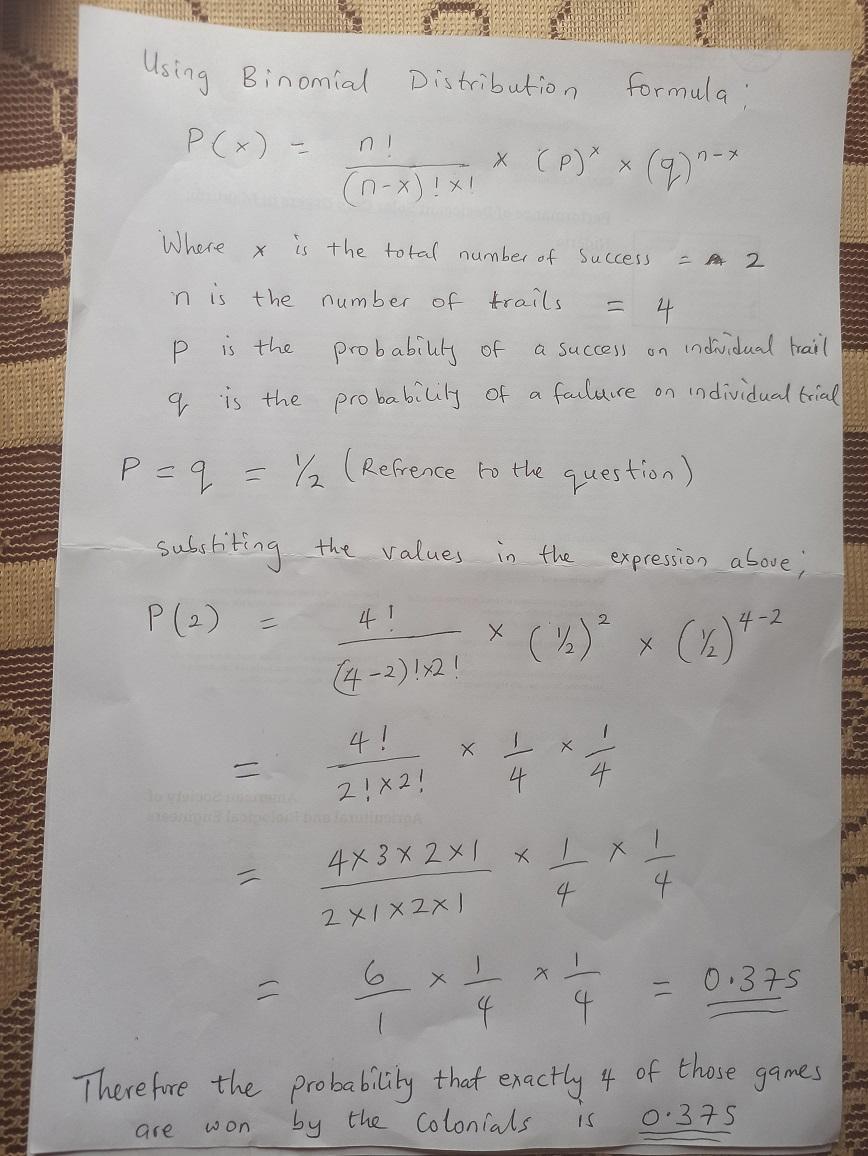 Using Binomial Distribution formula;
P(x) = n! / (n-x)! x! × (p)^x × (q)^n-x
Where x is the total number of success = 2
n is the number of trails = 4
p is the probability of a success on individual trail
q is the probability of a failure on individual trial
P = q = 1/2 (Refrence to the question)
substiting the values in the expression above;
P(2) = 4! / (4-2)! × 2! × (1/2)^2 × (1/2)^4-2
= 4! / 2! × 2! × 1/4 × 1/4
= 4 × 3 × 2 × 1 / 2 × 1 × 2 × 1 × 1/4 × 1/4
= 6/1 × 1/4 × 1/4 = 0.375
Therefore the probability that exactly 4 of those games
are won by the Colonials is 0.375